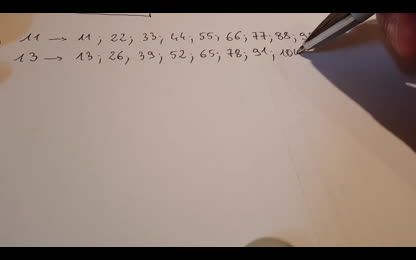 11 → 11 ; 22 ; 33 ; 44 ; 55 ; 66 ; 77 ; 88 ;
13 → 13 ; 26 ; 39 ; 52 ; 65 ; 78 ; 91 ; 104